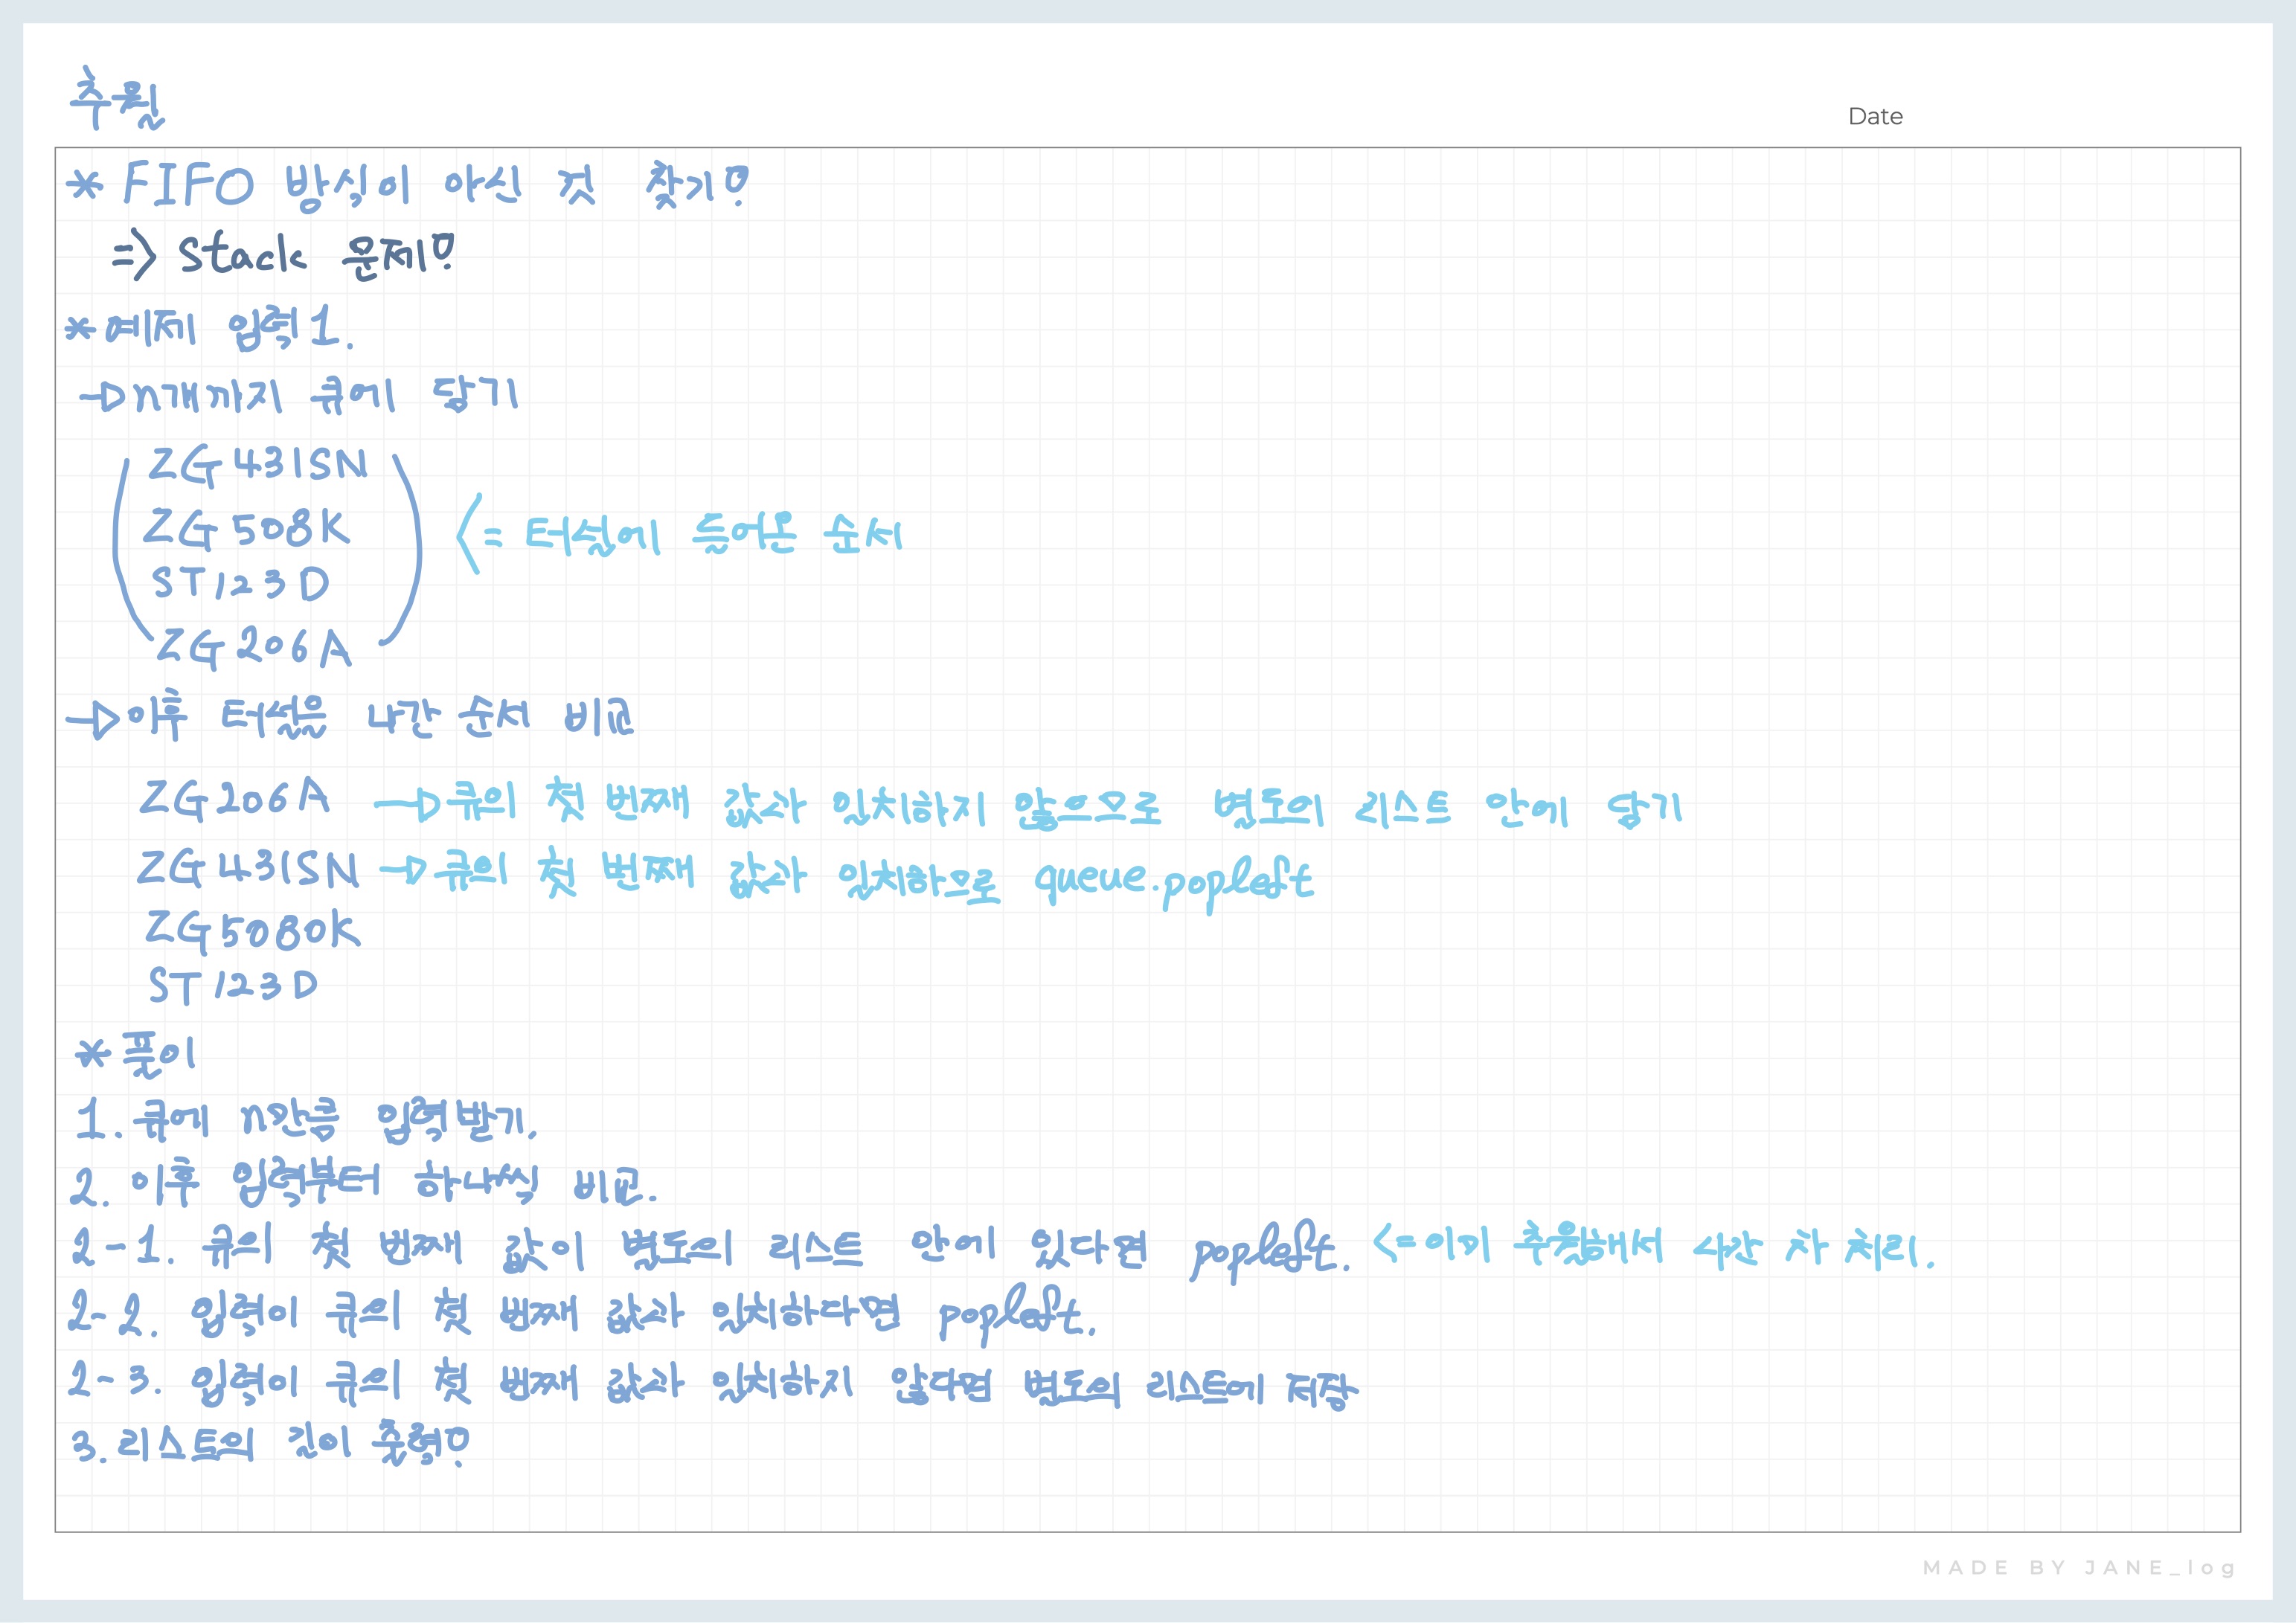 추월
Date
* FIFO 방식이 아닌 것 찾기?
=> Stack 문제?
* 예제 입력 1.
→ n개까지 큐에 담기
ZG431SN
ZG508K
ST123D
ZG206A
<= 터널에 들어온 순서
→ 이후 터널을 나간 순서 비교
ZG206A → 큐의 첫 번째 값과 일치하지 않으므로 별도의 리스트 안에 담기
ZG431SN → 큐의 첫 번째 값과 일치하므로 queue.popleft
ZG5080K
ST123D
* 풀이
1. 큐에 n만큼 입력받기.
2. 이후 입력부터 하나씩 비교.
2-1. 큐의 첫 번째 값이 별도의 리스트 안에 있다면 popleft. <= 이미 추월해서 나간 차 처리.
2-2. 입력이 큐의 첫 번째 값과 일치하다면 popleft.
2-3. 입력이 큐의 첫 번째 값과 일치하지 않다면 별도의 리스트에 저장
3. 리스트의 길이 출력?
MADE BY JANE_log